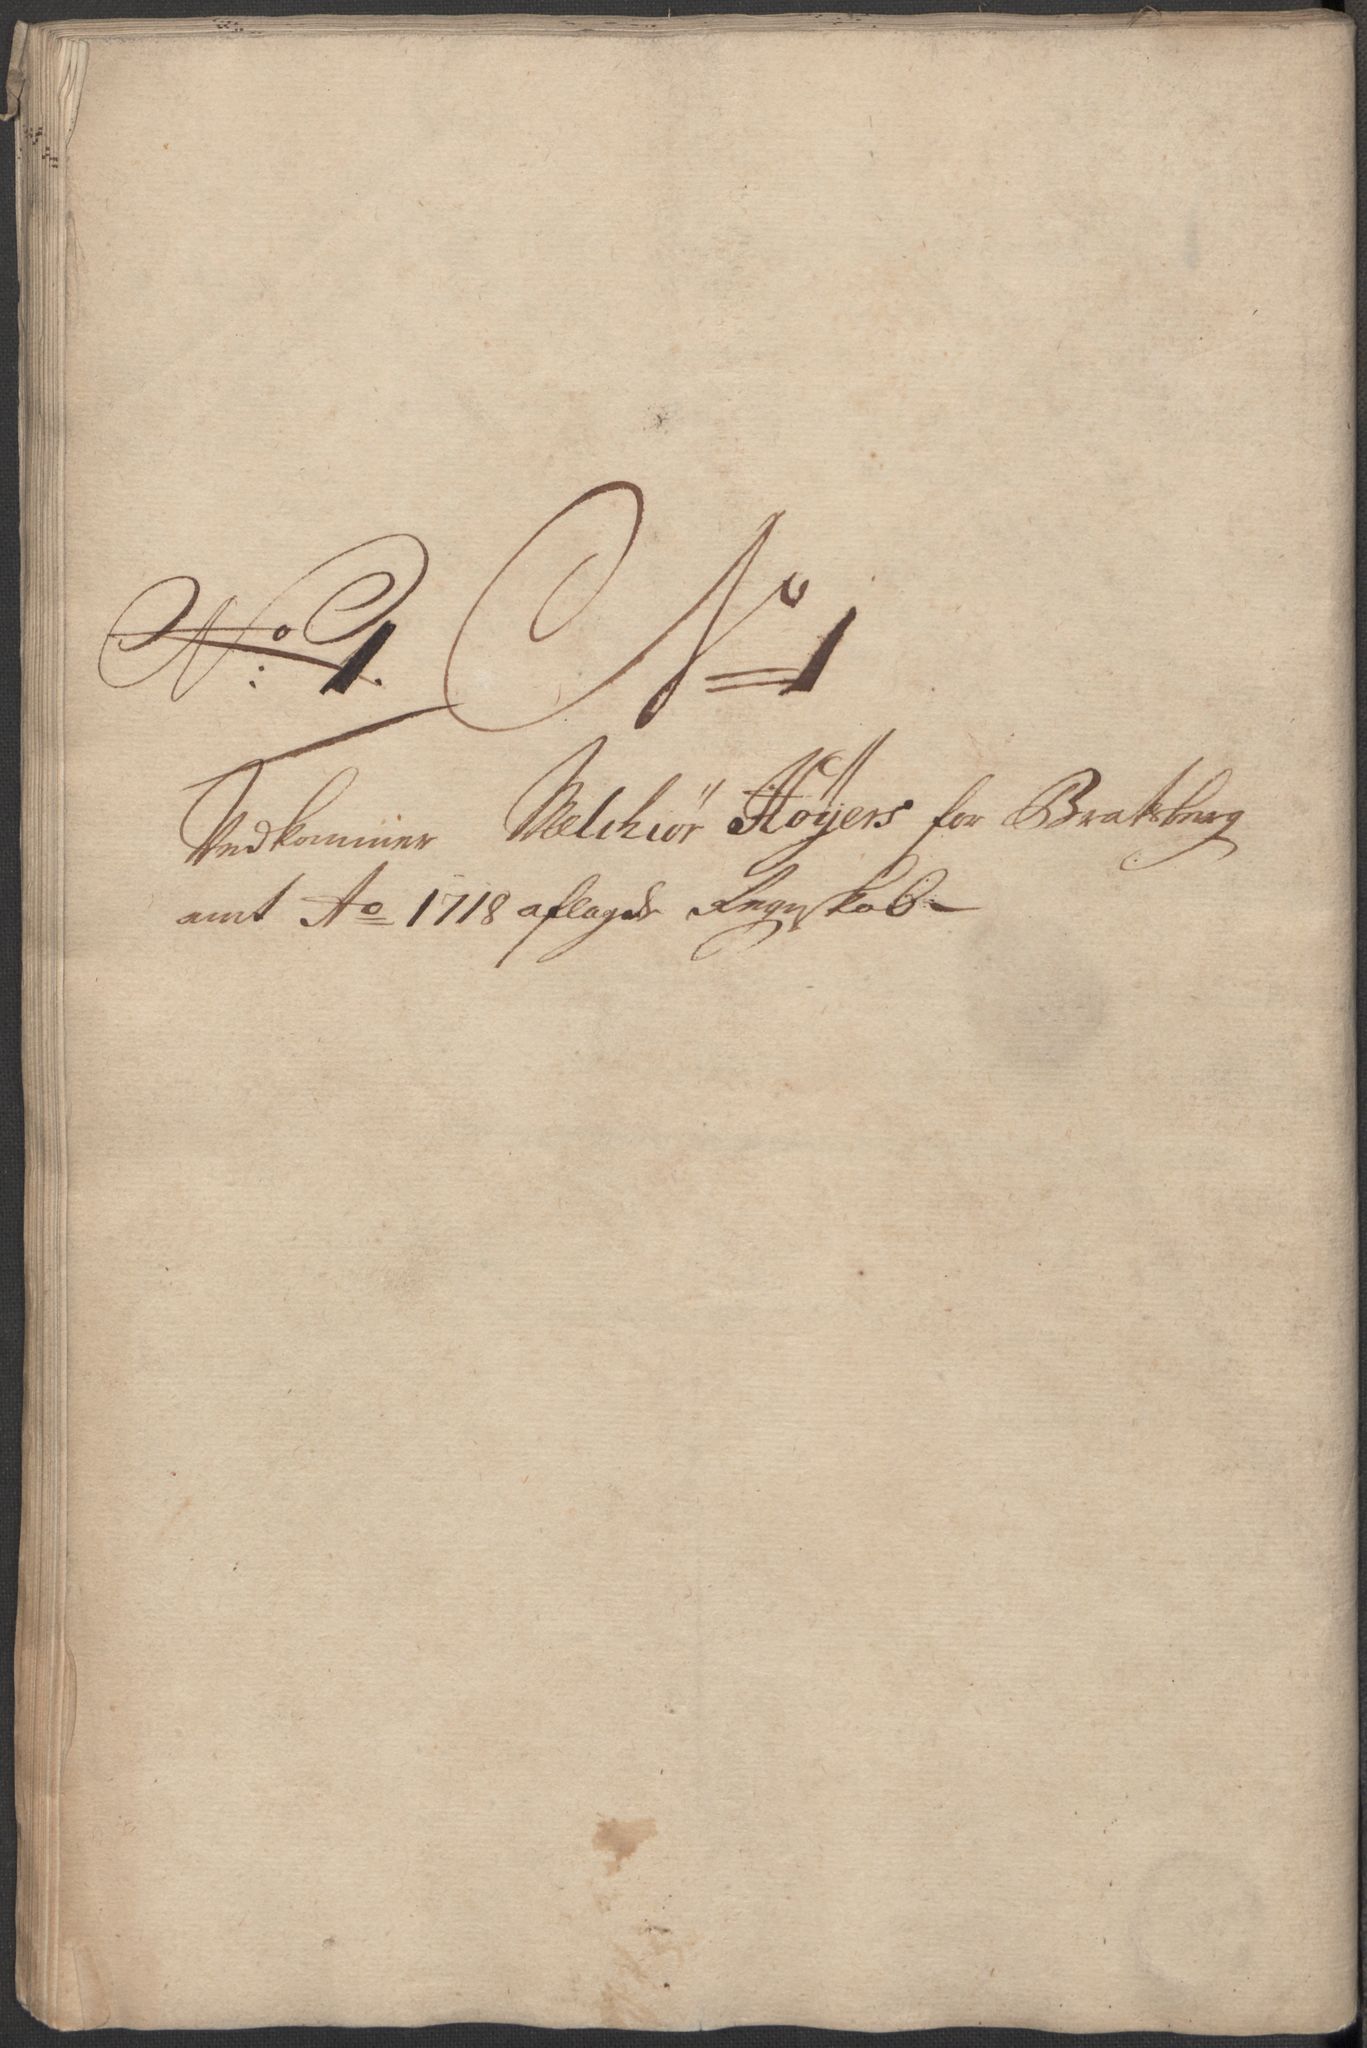 No: 1. No 1
Vedkommer Melchior Höÿers for Bratsberg
amt Ao 1718 aflagde Regnskab